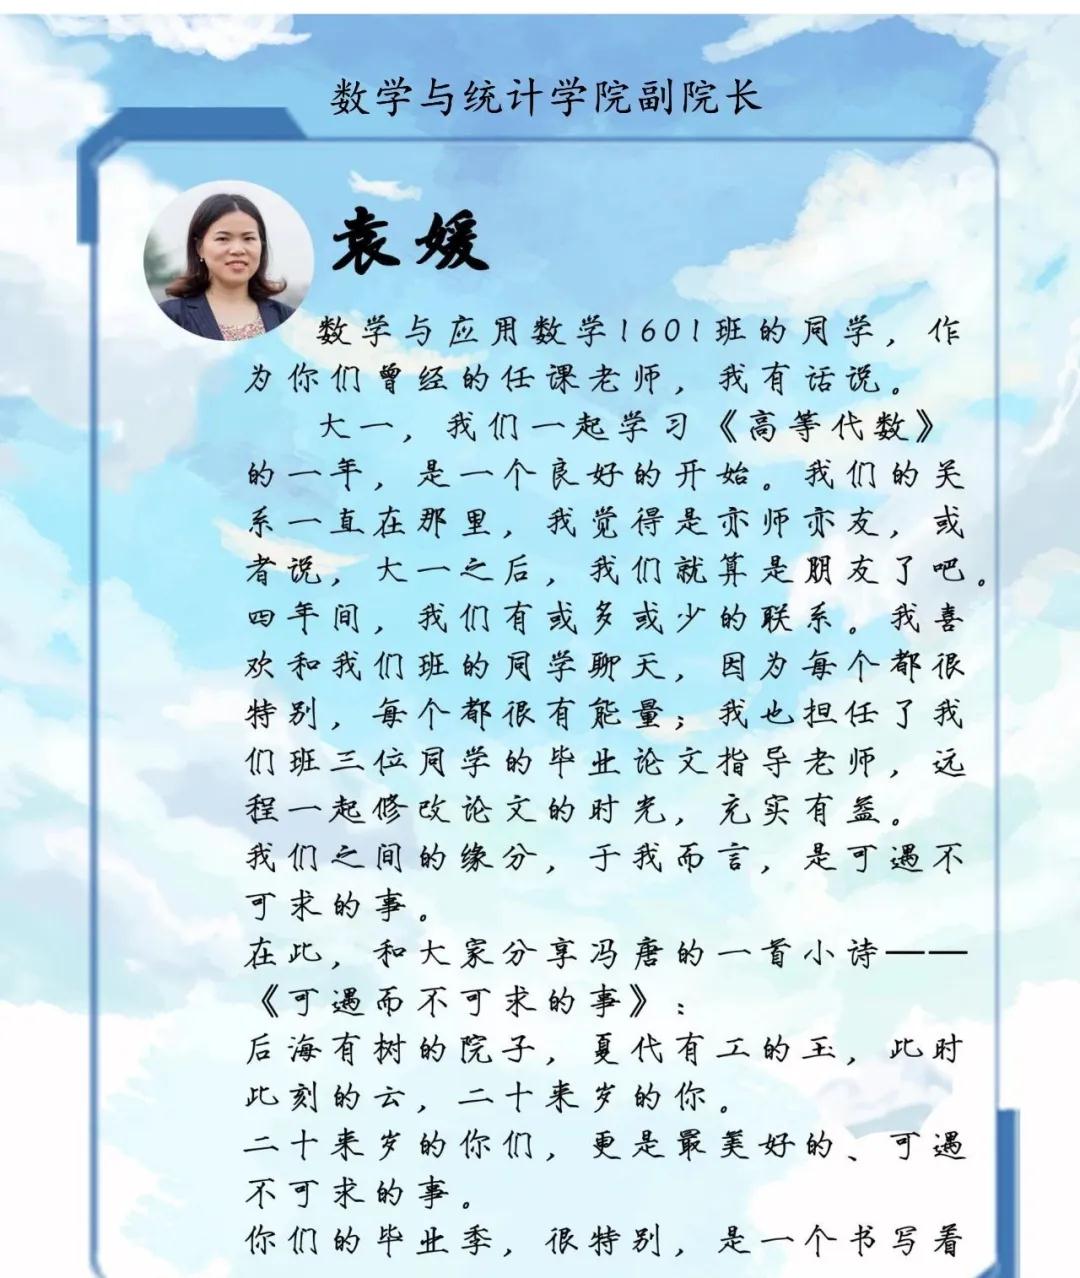 数学与统计学院副院长
袁媛
数学与应用数学1601班的同学，作
为你们曾经的任课老师，我有话说。
大一，我们一起学习《高等代数》
的一年，是一个良好的开始。我们的关
系一直在那里，我觉得是亦师亦友，或
者说，大一之后，我们就算是朋友了吧。
四年间，我们有或多或少的联系。我喜
欢和我们班的同学聊天，因为每个都很
特别，每个都很有能量；我也担任了我
们班三位同学的毕业论文指导老师，远
程一起修改论文的时光，充实有益。
我们之间的缘分，于我而言，是可遇不
可求的事。
在此，和大家分享冯唐的一首小诗——
《可遇而不可求的事》：
后海有树的院子，夏代有工的玉，此时
此刻的云，二十来岁的你。
二十来岁的你们，更是最美好的、可遇
不可求的事。
你们的毕业季，很特别，是一个书写着